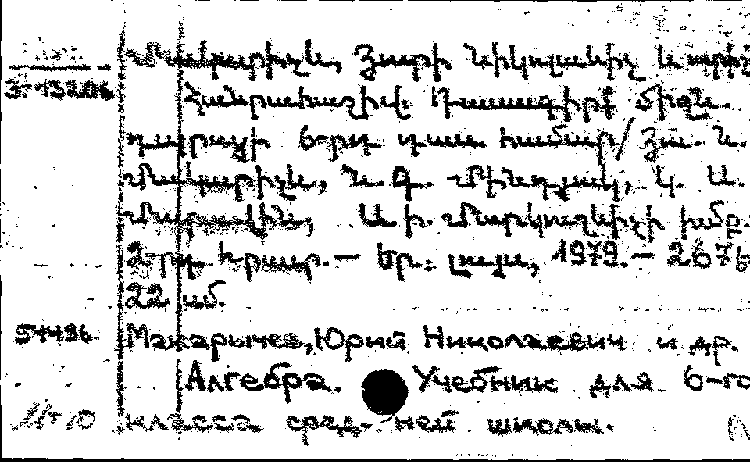 Մակարիչև, Յուրի Նիկոլաևիչ և ուրիշ
3-13206 Հանրահաշիվ: Դասագիրք միջն.
դպրոցի 6-րդ դաս. համար/ Յու. Ն.
Մակարիչև, Ն. Գ. Մինդյուկ, Կ. Ս.
Մուրավին, Ս. Ի. Մարկուշևիչի խմբ.
2-րդ հրատ. — Եր.: Լույս, 1979. — 267 է
22 սմ.
54496 Макарычев, Юрий Николаевич и др.
Алгебра. Учебник для 6-го
класса сред-ней школы.